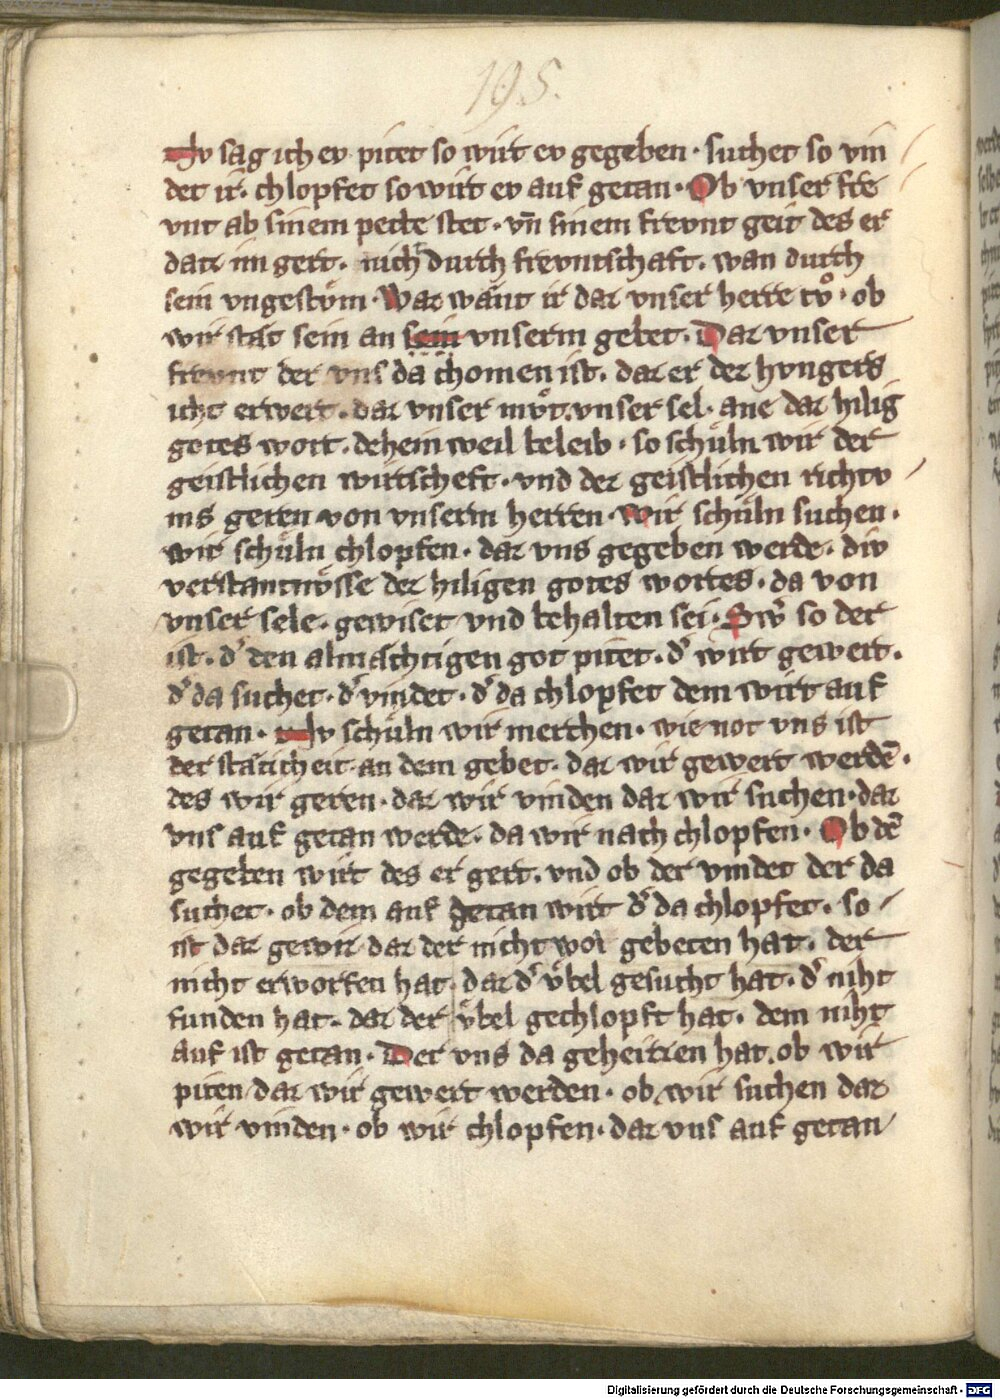 195.
Nv sag ich ev pitet so wirt ev gegeben · suchet so vin
det ir · chlopfet so wirt ev auf getan · Ob vnser fre
vnt ab sinem pette stet · vn̄ sinem frevnt geit des er
daz im gert · nicht durch frevntschaft · wan durch
sein vngestv̊m · Waz wænt ir daz vnser herre tv̊ · ob
wir stæt sein an sein vnserm gebet · Daz vnser
frevnt der vns da chomen ist · daz er dez hvngers
icht erwert · daz vnser mv̊t · vnser sel · ane daz hilig
gotes wort · dehein weil beleib · so schuͤln wir der
geistlichen wirtscheft · vnd der geistlichen richtv
ms geren von vnserm herren · Wir schuͤln suchen ·
wir schuͤln chlopfen · daz vns gegeben werde · div
verstantnv̊sse der hiligen gotes wortes · da von
vnser sele · gewiset vnd behalten sei · Sw͛ so der
ist · d͛ den almæchtigen got pitet · d͛ wirt gewert ·
d͛ da suchet · d͛ vindet · d͛ da chlopfet dem wirt auf
getan · Nv schuͤln wir merchen · wie not vns ist
der stæticheit an dem gebet · daz wir gewert werdē ·
des wir geren · daz wir vinden daz wir suchen · daz
vns auf getan werde · da wir nach chlopfen · Ob dē
gegeben wirt des er gert · vnd ob der vindet der da
suchet · ob dem auf getan wirt d͛ da chlopfet · so
ist daz gewis daz der nicht wol gebeten hat · der
nicht erworfen hat · daz d͛ vͤbel gesucht hat · d͛ niht
funden hat · daz der vͤbel gechlopft hat · dem niht
auf ist getan · Der vns da geheizzen hat · ob wir
piten daz wir gewert werden · ob wir suchen daz
wir vinden · ob wir chlopfen · daz vns auf getan
Digitalisierung gefördert durch die Deutsche Forschungsgemeinschaft - DFG